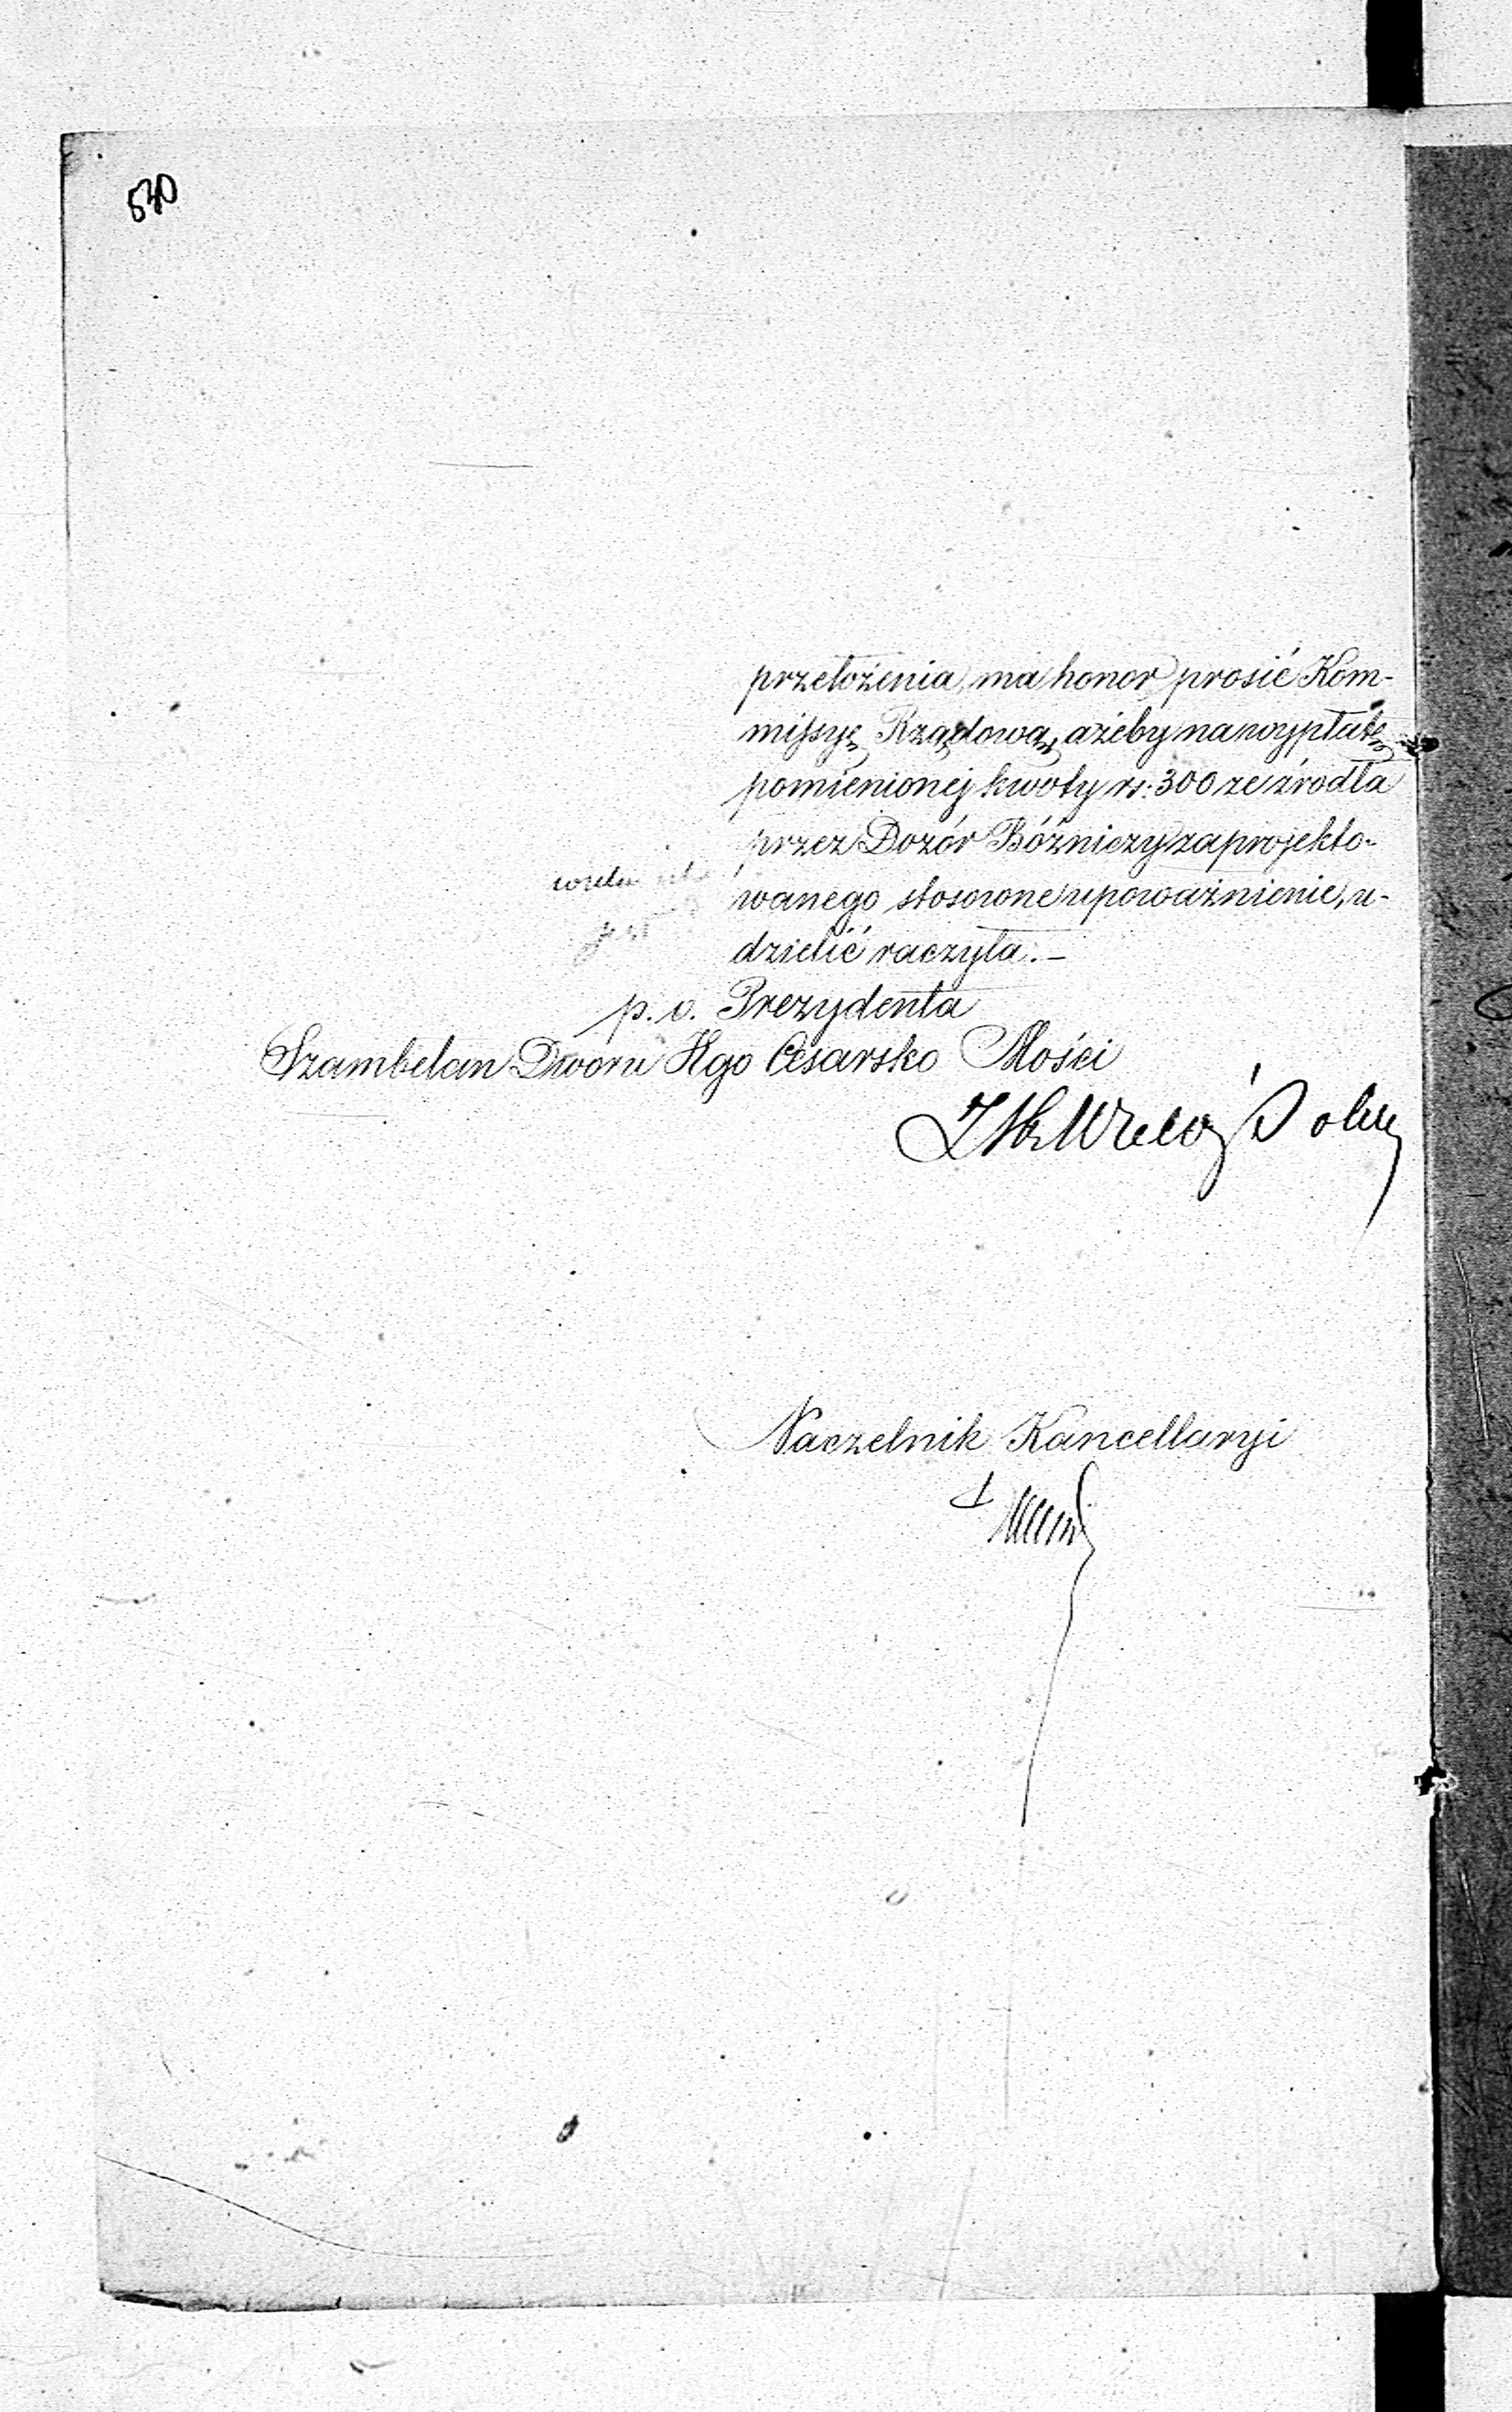 530
przełożenia, ma honor prosić Kom-
missyę Rządową, ażeby na wypłatę
pomienionej kwoty rs: 300 ze źródła
przez Dozór Bóżniczy zaprojekto-
wanego stosowne upoważnienie, u-
dzielić raczyła.-
p. o. Prezydenta
Szambelan Dworu JKgo Cesarsko Mości
Naczelnik Kancellaryi